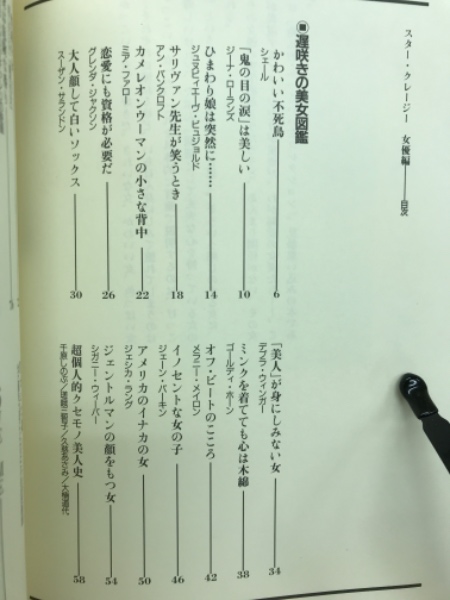 スター・クレージー 女優編——目次
■遅咲きの美女図鑑
かわいい不死鳥——6
シェール
「鬼の目の涙」は美しい——10
ジーナ・ローランズ
ひまわり娘は突然に……——14
ジュヌビィエーヴ・ビュジョルド
サリヴァン先生が笑うとき——18
アン・バンクロフト
カメレオンウーマンの小さな背中——22
ミア・ファロー
恋愛にも資格が必要だ——26
グレンダ・ジャクソン
大人顔して白いソックス——30
スーザン・サランドン
「美人」が身にしみない女——34
デブラ・ウィンガー
ミンクを着てても心は木綿——38
ゴールディ・ホーン
オフ・ビートのこころ——42
メラニー・メイロン
イノセントな女の子——46
ジェーン・バーキン
アメリカのイナカの女——50
ジェシカ・ラング
ジェントルマンの顔をもつ女——54
シガニー・ウィーバー
超個人的クセモノ美人史——58
千原しのぶ／瑳峨三智子／久慈あさみ／大楠道代